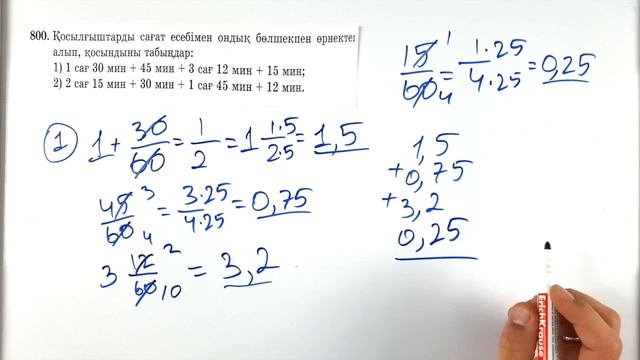 800. Қосылғыштарды сағат есебімен ондық бөлшекпен өрнектеп
алып, қосындыны табыңдар:
1) 1 сағ 30 мин + 45 мин + 3 сағ 12 мин + 15 мин;
2) 2 сағ 15 мин + 30 мин + 1 сағ 45 мин + 12 мин.
1 1 + 30/60 = 1/2 = 1 1·5/2·5 = 1,5
45/60 3/4 = 3·25/4·25 = 0,75
3 12/60 2/10 = 3,2
15/60 1/4 = 1·25/4·25 = 0,25
1,5
+0,75
+3,2
0,25
ErichKrause